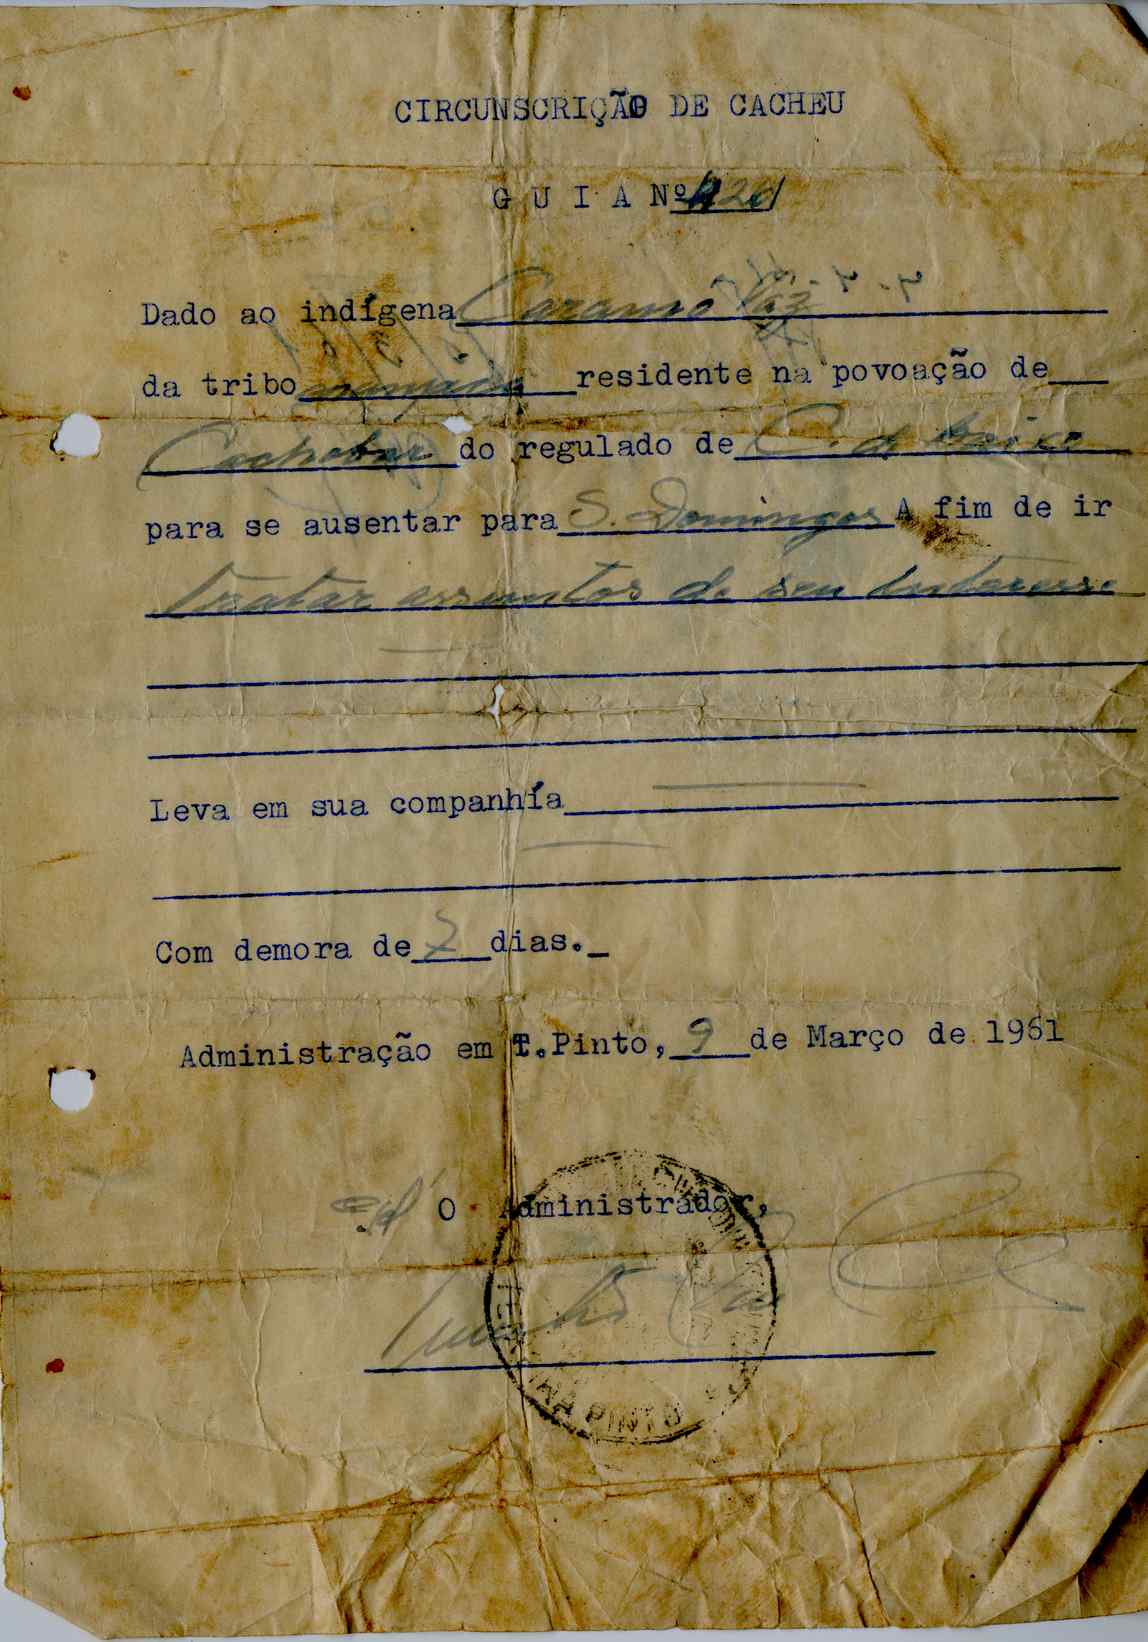 CIRCUNSCRIÇÃO DE CACHEU
G U I A Nº
Dado ao indígena Caramô Vaz
da tribo residente na povoação de
do regulado de C. de baixo
para se ausentar para S. Domingos A fim de ir
tratar assuntos de seu interesse
Leva em sua companhía
Com demora de 7 dias.
Administração em T.Pinto, 9 de Março de 1961
O Administrador,
PINTO